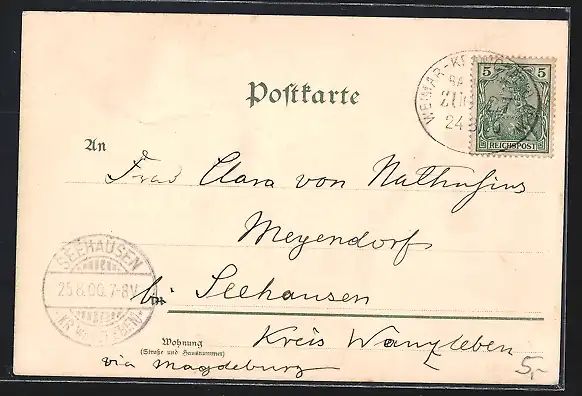 Postkarte
5 5
REICHSPOST
WEIMAR-
ZUG 27
24 8
An
Frau Clara von Nathusius
Meyendorf
SEEHAUSEN
25.8.00.7-8V.
bei Seehausen
Kreis Wanzleben
Wohnung
(Straße und Hausnummer)
via Magdeburg
5,-